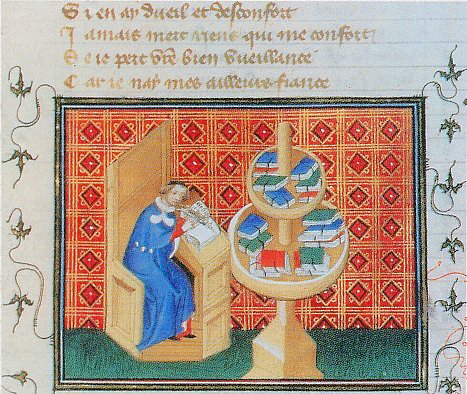 Si en ay dueil et desconfort
Jamais niert riens qui me confort
Se ie pert vr̃e bien vueillance
Car ie nay mes ailleurs fiance